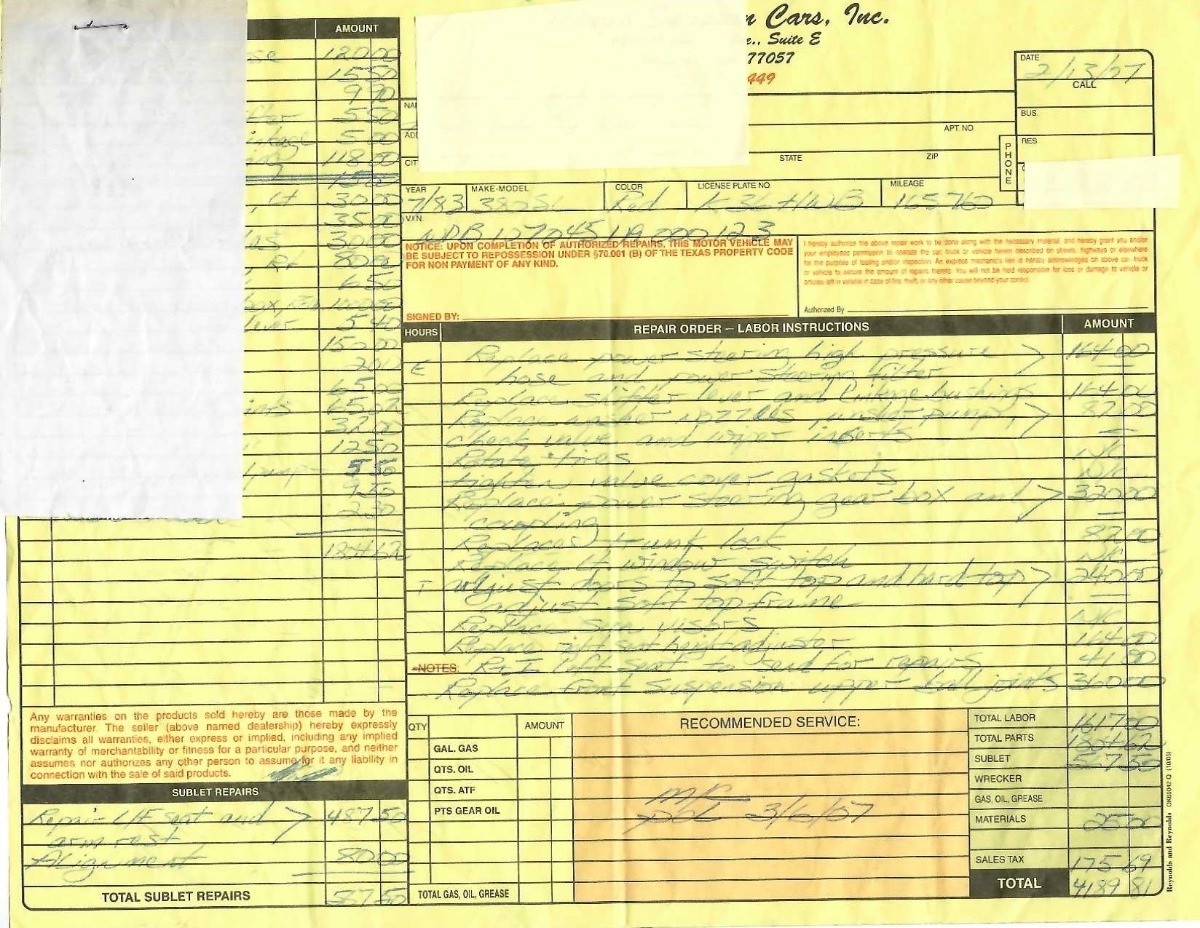 n Cars, Inc.
e., Suite E
77057
449
DATE
2/13/07
CALL
BUS.
RES
PHONE
APT. NO
STATE
ZIP
YEAR
7/83
MAKE-MODEL
380SL
COLOR
Red
LICENSE PLATE NO.
K36 HWB
MILEAGE
165760
V.I.N.
NOTICE: UPON COMPLETION OF AUTHORIZED REPAIRS, THIS MOTOR VEHICLE MAY
BE SUBJECT TO REPOSSESSION UNDER §70.001 (B) OF THE TEXAS PROPERTY CODE
FOR NON PAYMENT OF ANY KIND.
SIGNED BY:
I hereby authorize the above repair work to be done along with the necessary material, and hereby grant you and/or
your employees permission to operate the car, truck or vehicle herein described on streets, highways or elsewhere
for the purpose of testing and/or inspection. An express mechanic's lien is hereby acknowledged on above car, truck
or vehicle to secure the amount of repairs thereto. You will not be held responsible for loss or damage to vehicle or
articles left in vehicle in case of fire, theft, or any other cause beyond your control.
Authorized By
AMOUNT
120.00
15.50
9.90
5.50
5.00
118.00
30.00
35.00
30.00
80.00
6.50
5.40
150.00
65.00
65.02
32.00
12.50
5.50
9.50
2.30
1804.62
HOURS
REPAIR ORDER – LABOR INSTRUCTIONS
AMOUNT
Replace power steering high pressure > 164.00
hose and power steering filter
Replace shifter lever and linkage bushings 164.00
Replace washer nozzles, washer pump, > 82.00
check valve and wiper inserts
Rotate tires N/C
tighten valve cover gaskets N/C
Replace power steering gear box and > 320.00
coupling
Replace trunk lock 82.00
Replace Lf window switch N/C
adjust doors to soft top and hard top > 240.00
adjust soft top frame
Replace sun visors N/C
Replace rift seat height adjustor 164.00
NOTES: R+I left seat to send for repairs 41.00
Replace Front suspension upper ball joints 360.00
Any warranties on the products sold hereby are those made by the
manufacturer. The seller (above named dealership) hereby expressly
disclaims all warranties, either express or implied, including any implied
warranty of merchantability or fitness for a particular purpose, and neither
assumes nor authorizes any other person to assume for it any liability in
connection with the sale of said products.
SUBLET REPAIRS
Repair L/F seat and > 487.50
arm rest
Alignment 80.00
TOTAL SUBLET REPAIRS 567.50
QTY
AMOUNT
GAL. GAS
QTS. OIL
QTS. ATF
PTS GEAR OIL
TOTAL GAS, OIL, GREASE
RECOMMENDED SERVICE:
MC
3/6/07
TOTAL LABOR 1617.00
TOTAL PARTS 1804.62
SUBLET 567.50
WRECKER
GAS, OIL, GREASE
MATERIALS 25.00
SALES TAX 175.69
TOTAL 4189.81